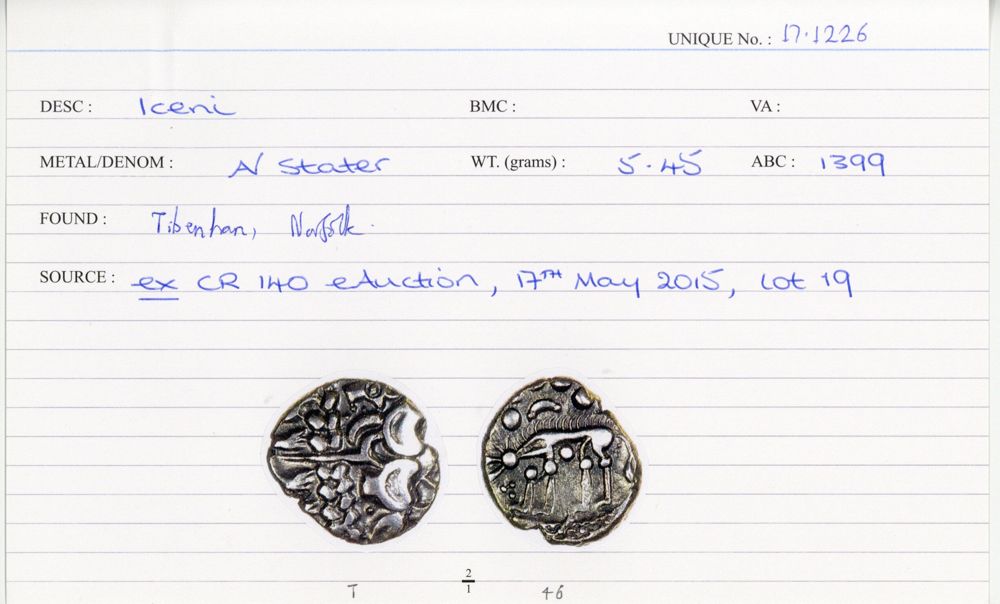 UNIQUE No. : 17.1226
DESC : Iceni BMC : VA :
METAL/DENOM : N Stater WT. (grams) : 5.45 ABC : 1399
FOUND : Tibenhan, Norfolk.
SOURCE : ex CR 140 eAuction, 17TH May 2015, Lot 19
2
T 1 46